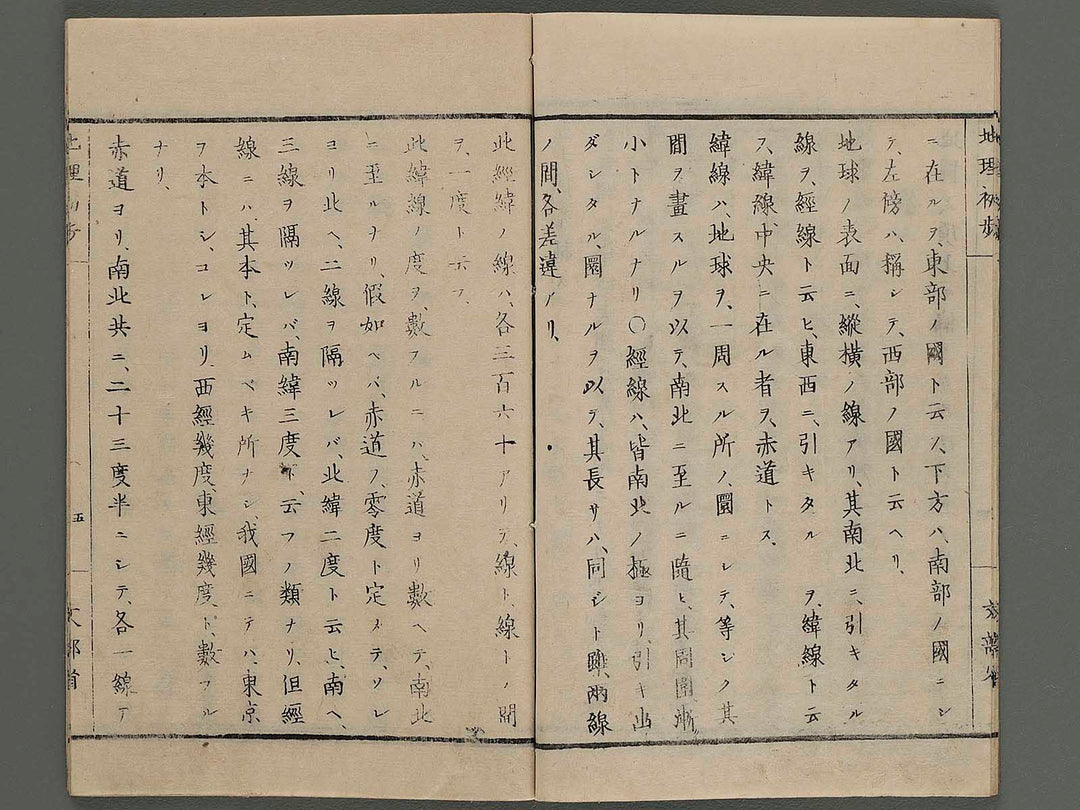 地理初歩
文部省
ニ在ルヲ、東部ノ國ト云フ、下方ハ、南部ノ國ニシ
テ、左傍ハ、稱シテ、西部ノ國ト云ヘリ、
地球ノ表面ニ、縱橫ノ線アリ、其南北ニ、引キタル
線ヲ、經線ト云ヒ、東西ニ、引キタル ヲ、緯線ト云
フ、緯線、中央ニ在ル者ヲ、赤道トス、
緯線ハ、地球ヲ、一周スル所ノ、圜ニシテ、等シク其
間ヲ畫スルヲ以テ、南北ニ至ルニ隨ヒ、其周圍漸
小トナルナリ〇經線ハ、皆南北ノ極ヨリ、引キ出
ダシタル、圜ナルヲ以テ、其長サハ、同ジト雖、兩線
ノ間、各差違アリ、
此經緯ノ線ハ、各三百六十アリテ、線ト、線トノ間
ヲ、一度ト云フ、
此緯線ノ度ヲ數フルニハ、赤道ヨリ數ヘテ、南北
ニ至ルナリ、假如ヘバ、赤道ノ、零度ト定メテ、ソレ
ヨリ北ヘ、二線ヲ隔ツレバ、北緯二度ト云ヒ、南ヘ、
三線ヲ隔ツレバ、南緯三度ト、云フノ類ナリ、但經
線ニハ、其本ト、定ムベキ所ナシ、我國ニテハ、東京
ヲ本トシ、コレヨリ、西經幾度、東經幾度ト、數フル
ナリ、
赤道ヨリ、南北共ニ、二十三度半ニシテ、各一線ア
地理初歩
五
文部省